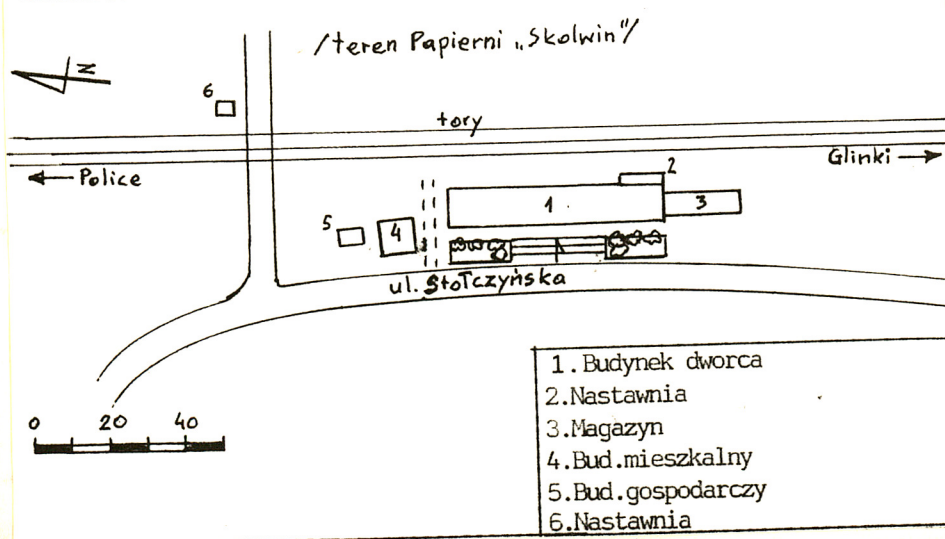 /teren Papierni „Skolwin"/
N
6
tory
Glinki →
← Police
2
1
3
5
4
ul. Stołczyńska
0 20 40
1.Budynek dworca
2.Nastawnia
3.Magazyn
4.Bud.mieszkalny
5.Bud.gospodarczy
6.Nastawnia